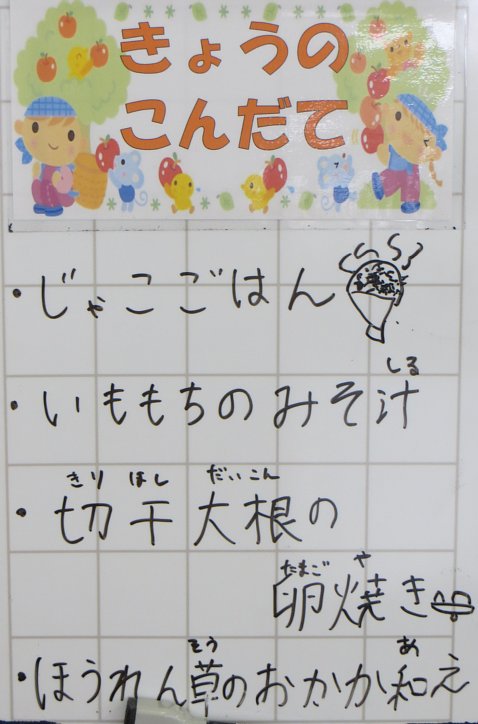 きょうの
こんだて
・じゃこごはん
しる
・いももちのみそ汁
きり ほし だいこん
・切干大根の
たまご や
卵焼き
そう あ
・ほうれん草のおかか和え